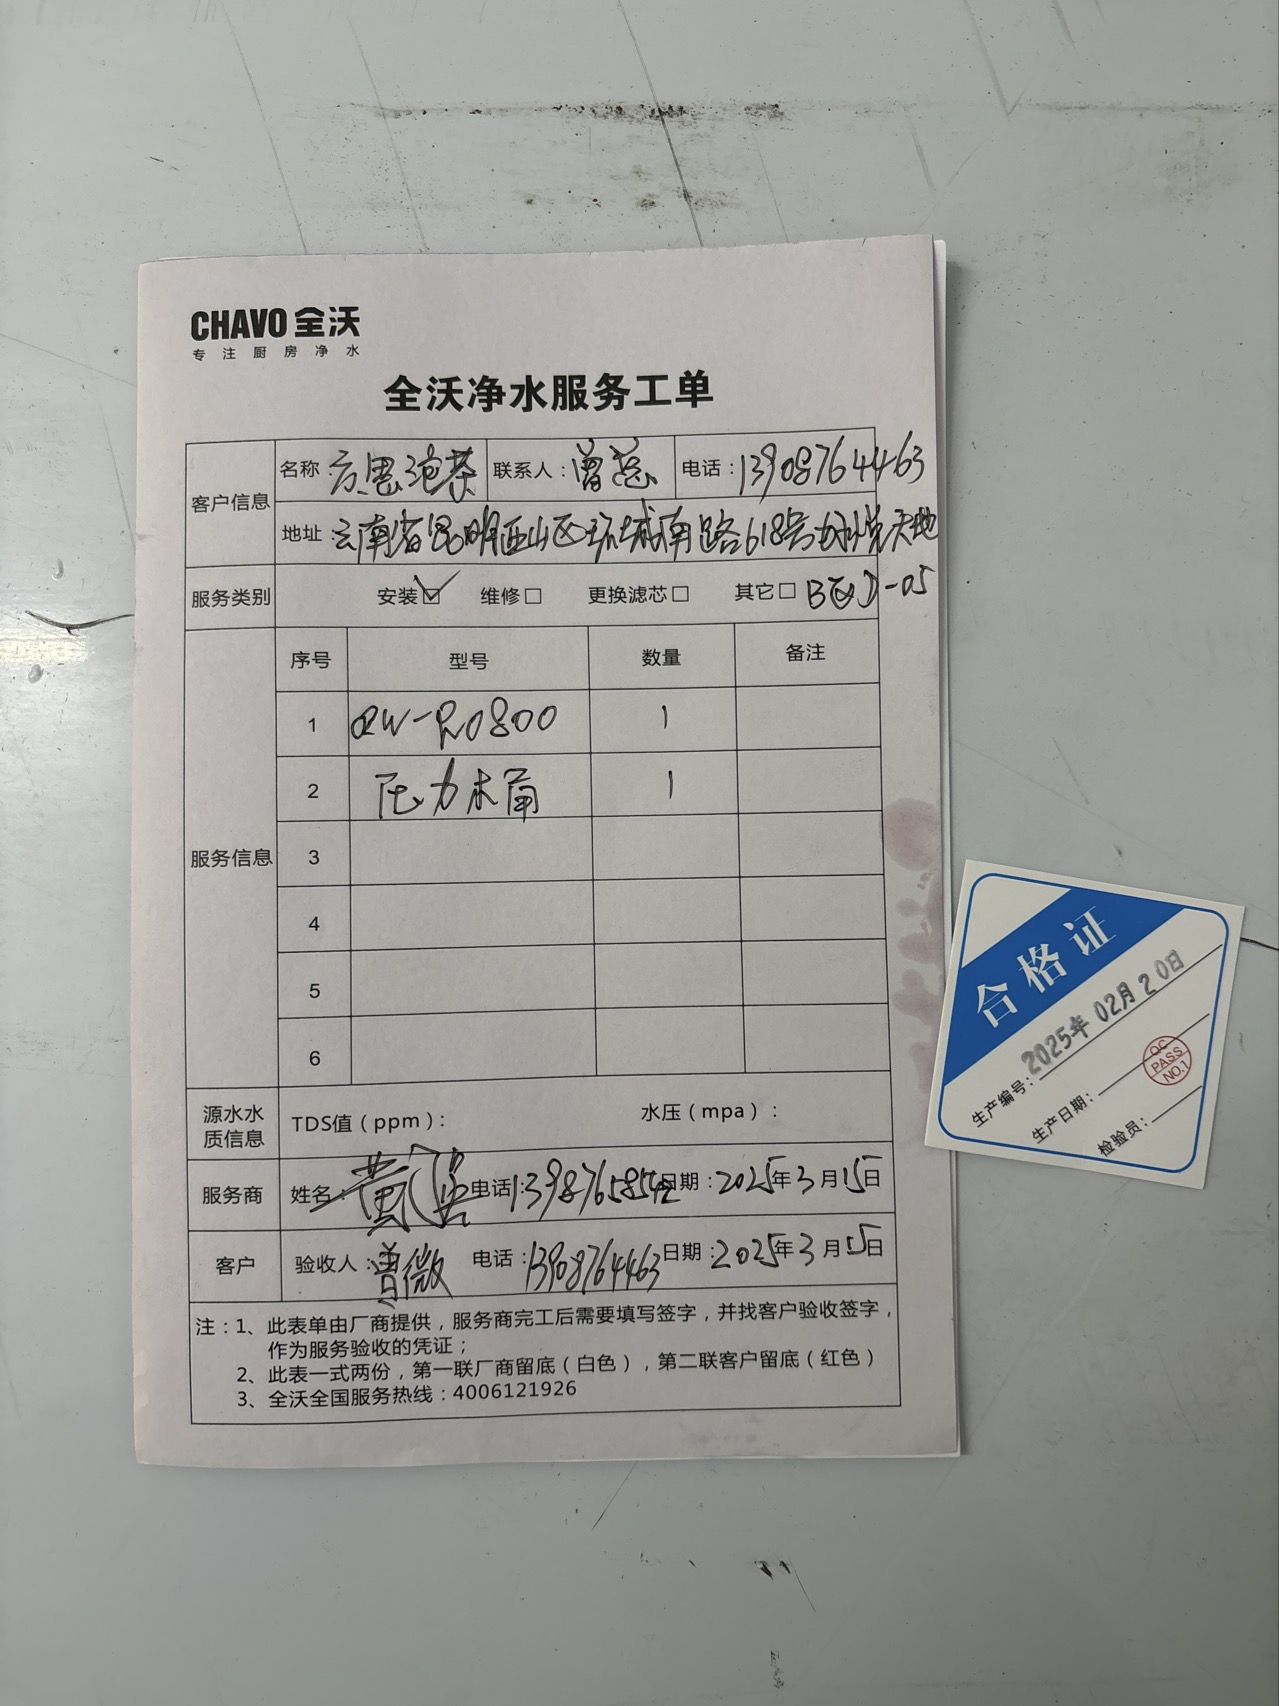 CHAVO 全沃
专注厨房净水
全沃净水服务工单
客户信息
名称：
联系人：曾
电话：13908764463
地址：云南省昆明西山区环城南路618号 悦天地
B区 -05
服务类别 安装☑ 维修□ 更换滤芯□ 其它□
服务信息
序号 型号 数量 备注
1 QW-RO800 1
2 压力木桶 1
3
4
5
6
源水水质信息
TDS值（ppm）： 水压（mpa）：
服务商 姓名：黄 电话：1398765854 日期：2025年3月15日
客户 验收人：曾微 电话：13908764463 日期：2025年3月15日
注：1、此表单由厂商提供，服务商完工后需要填写签字，并找客户验收签字，
作为服务验收的凭证；
2、此表一式两份，第一联厂商留底（白色），第二联客户留底（红色）
3、全沃全国服务热线：4006121926
合格证
生产编号：2025年02月20日
生产日期：
检验员：
QC
PASS
NO.1